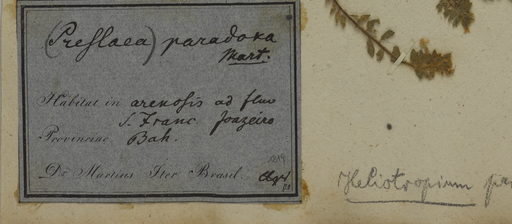 (Preslaea) paradoxa
Mart.
Habitat in arenosis ad fluv
S. Franc Joazeiro
Provinciae Bah.
Dr. Martius Iter Brasil.
Heliotropium par